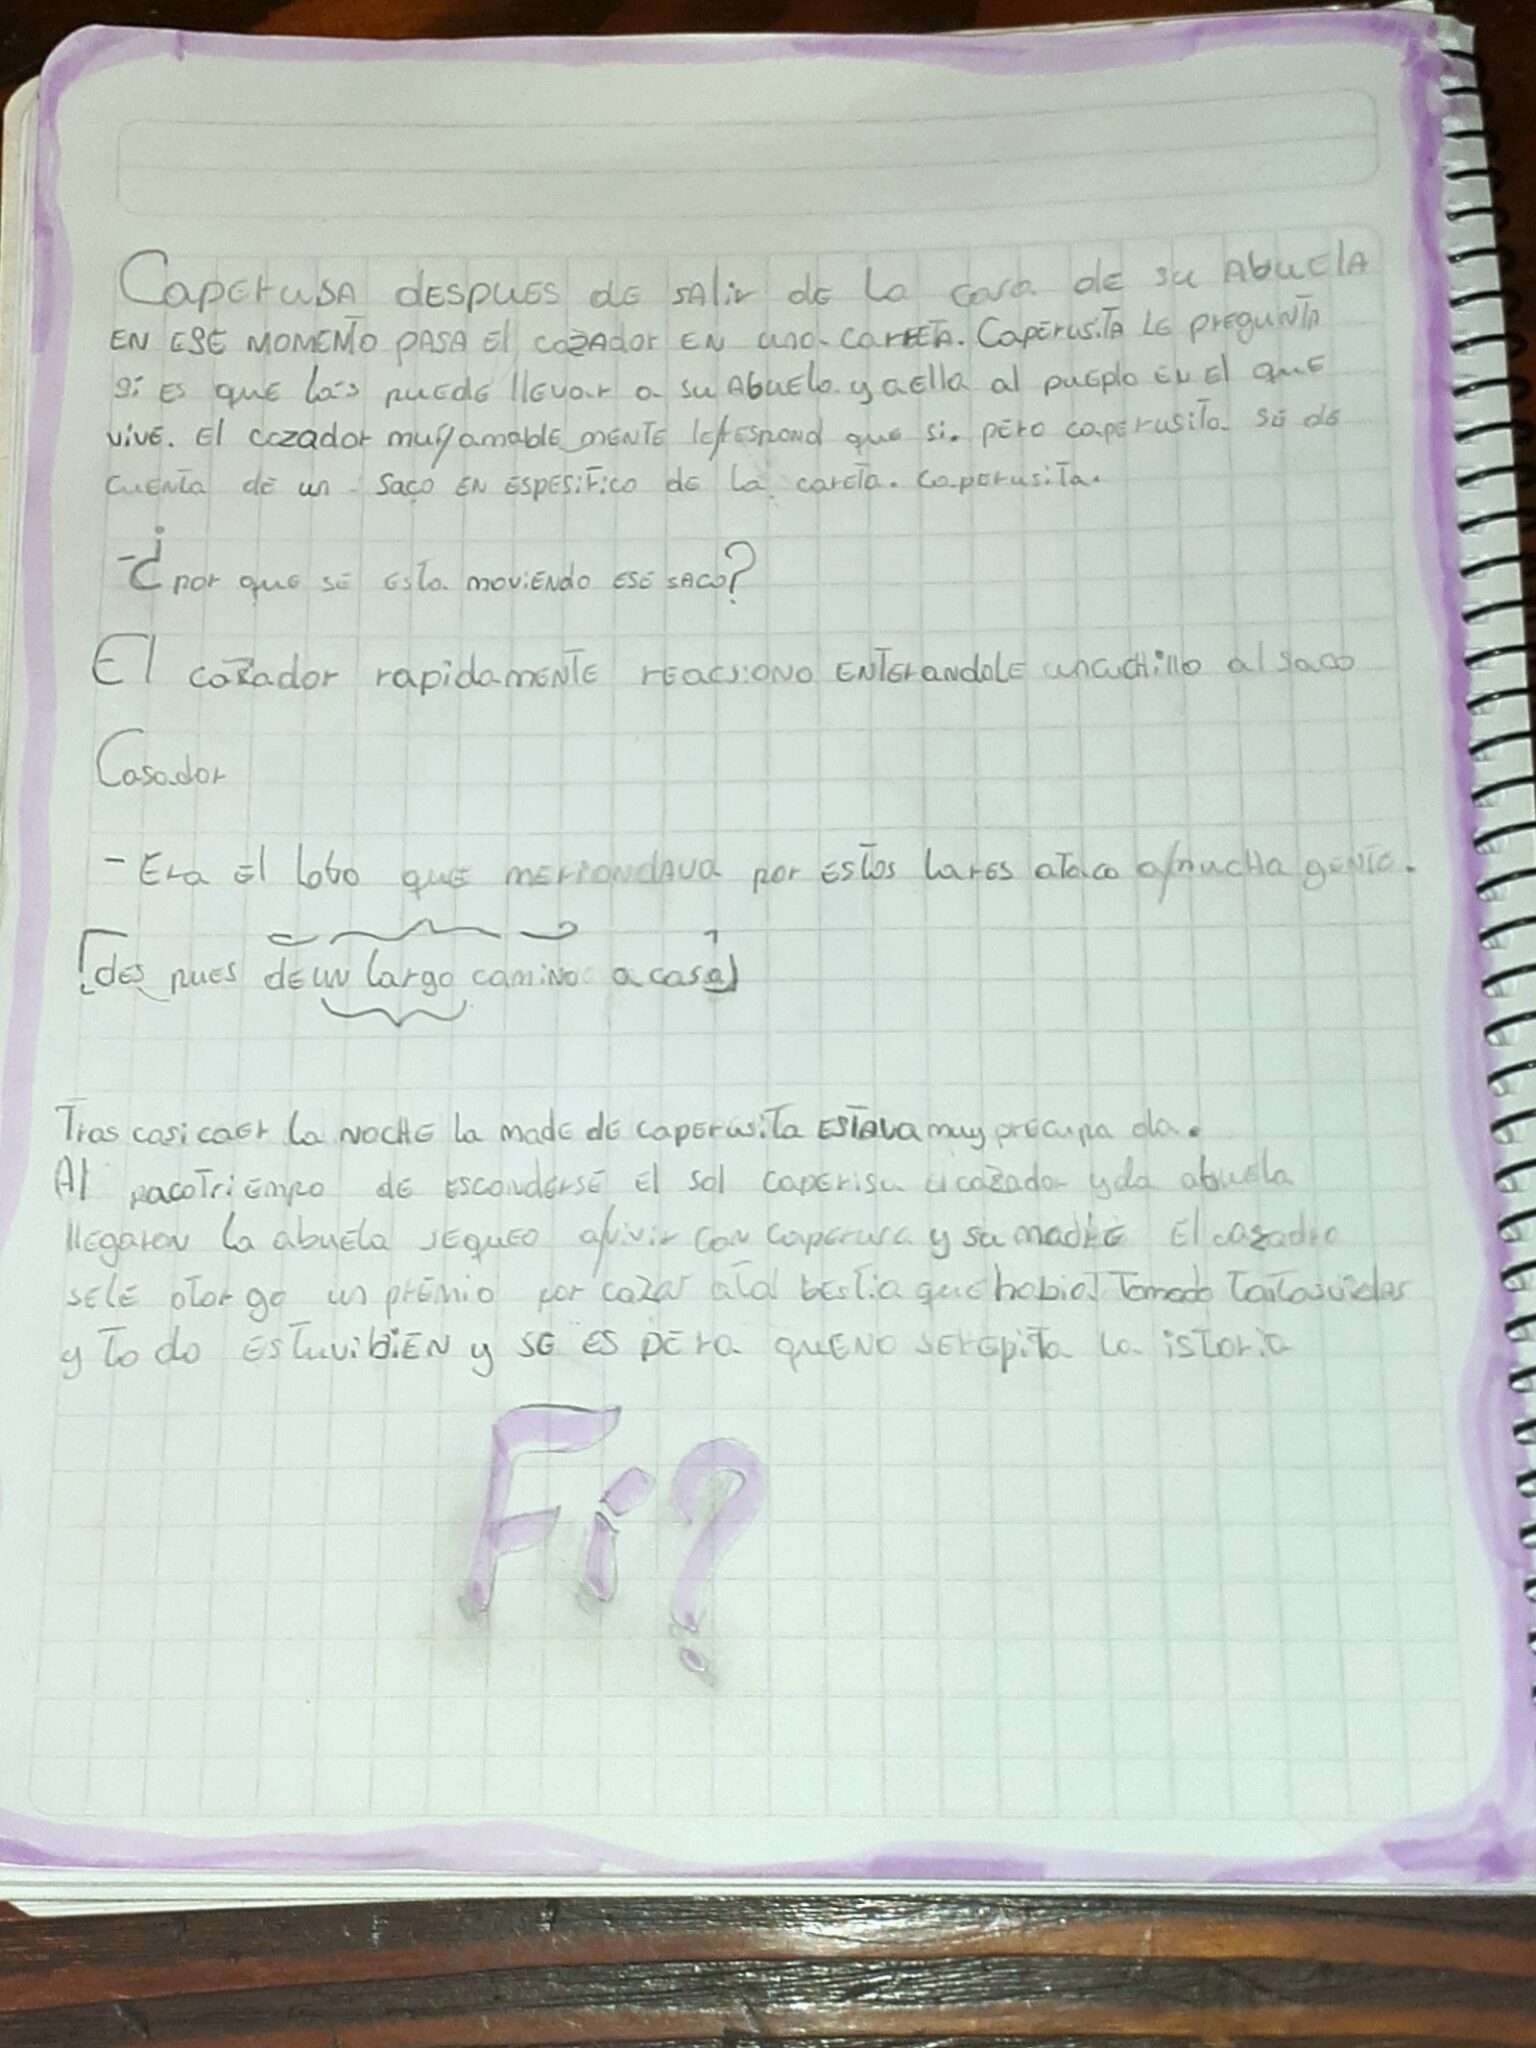 Caperusa despues de salir de la casa de su abuela
en ese momento pasa el cazador en una carreta. Caperusita le pregunta
si es que las puede llevar a su abuela y a ella al pueplo en el que
vive. El cazador muy amable mente le respond que si. pero caperusita se de
cuenta de un saco en espesifico de la careta. caperusita.
-¿por que se esta moviendo ese saco?
El cazador rapidamente reacsiono enterandole un cuchillo al saco
Casador
- Era el lobo que merrondava por estos lares ataco a mucha gente.
[des pues de un largo camino a casa]
Tras casi caer la noche la made de caperusita estava muy precupa da.
Al pacotriempo de esconderse el sol caperisa el cazador y da abuela
llegaron la abuela sequeo a vivir con caperusa y su madre El cazadro
sele otor go un premio por cazar a tal bestia que habia tomado tantas vidas
y to do estuvibien y se es pera queno serepita la istoria
Fi?